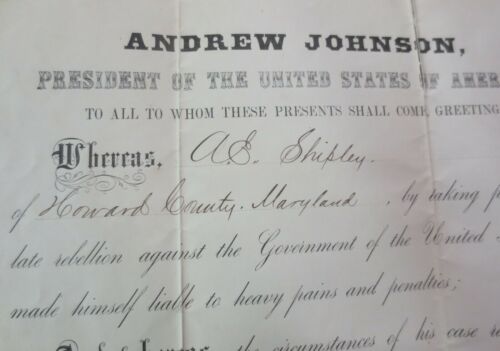 ANDREW JOHNSON,
PRESIDENT OF THE UNITED STATES OF AMER
TO ALL TO WHOM THESE PRESENTS SHALL COME, GREETING
Whereas, A. E. Shipley.
of Howard County. Maryland, by taking p
late rebellion against the Government of the United
made himself liable to heavy pains and penalties;
the circumstances of his case